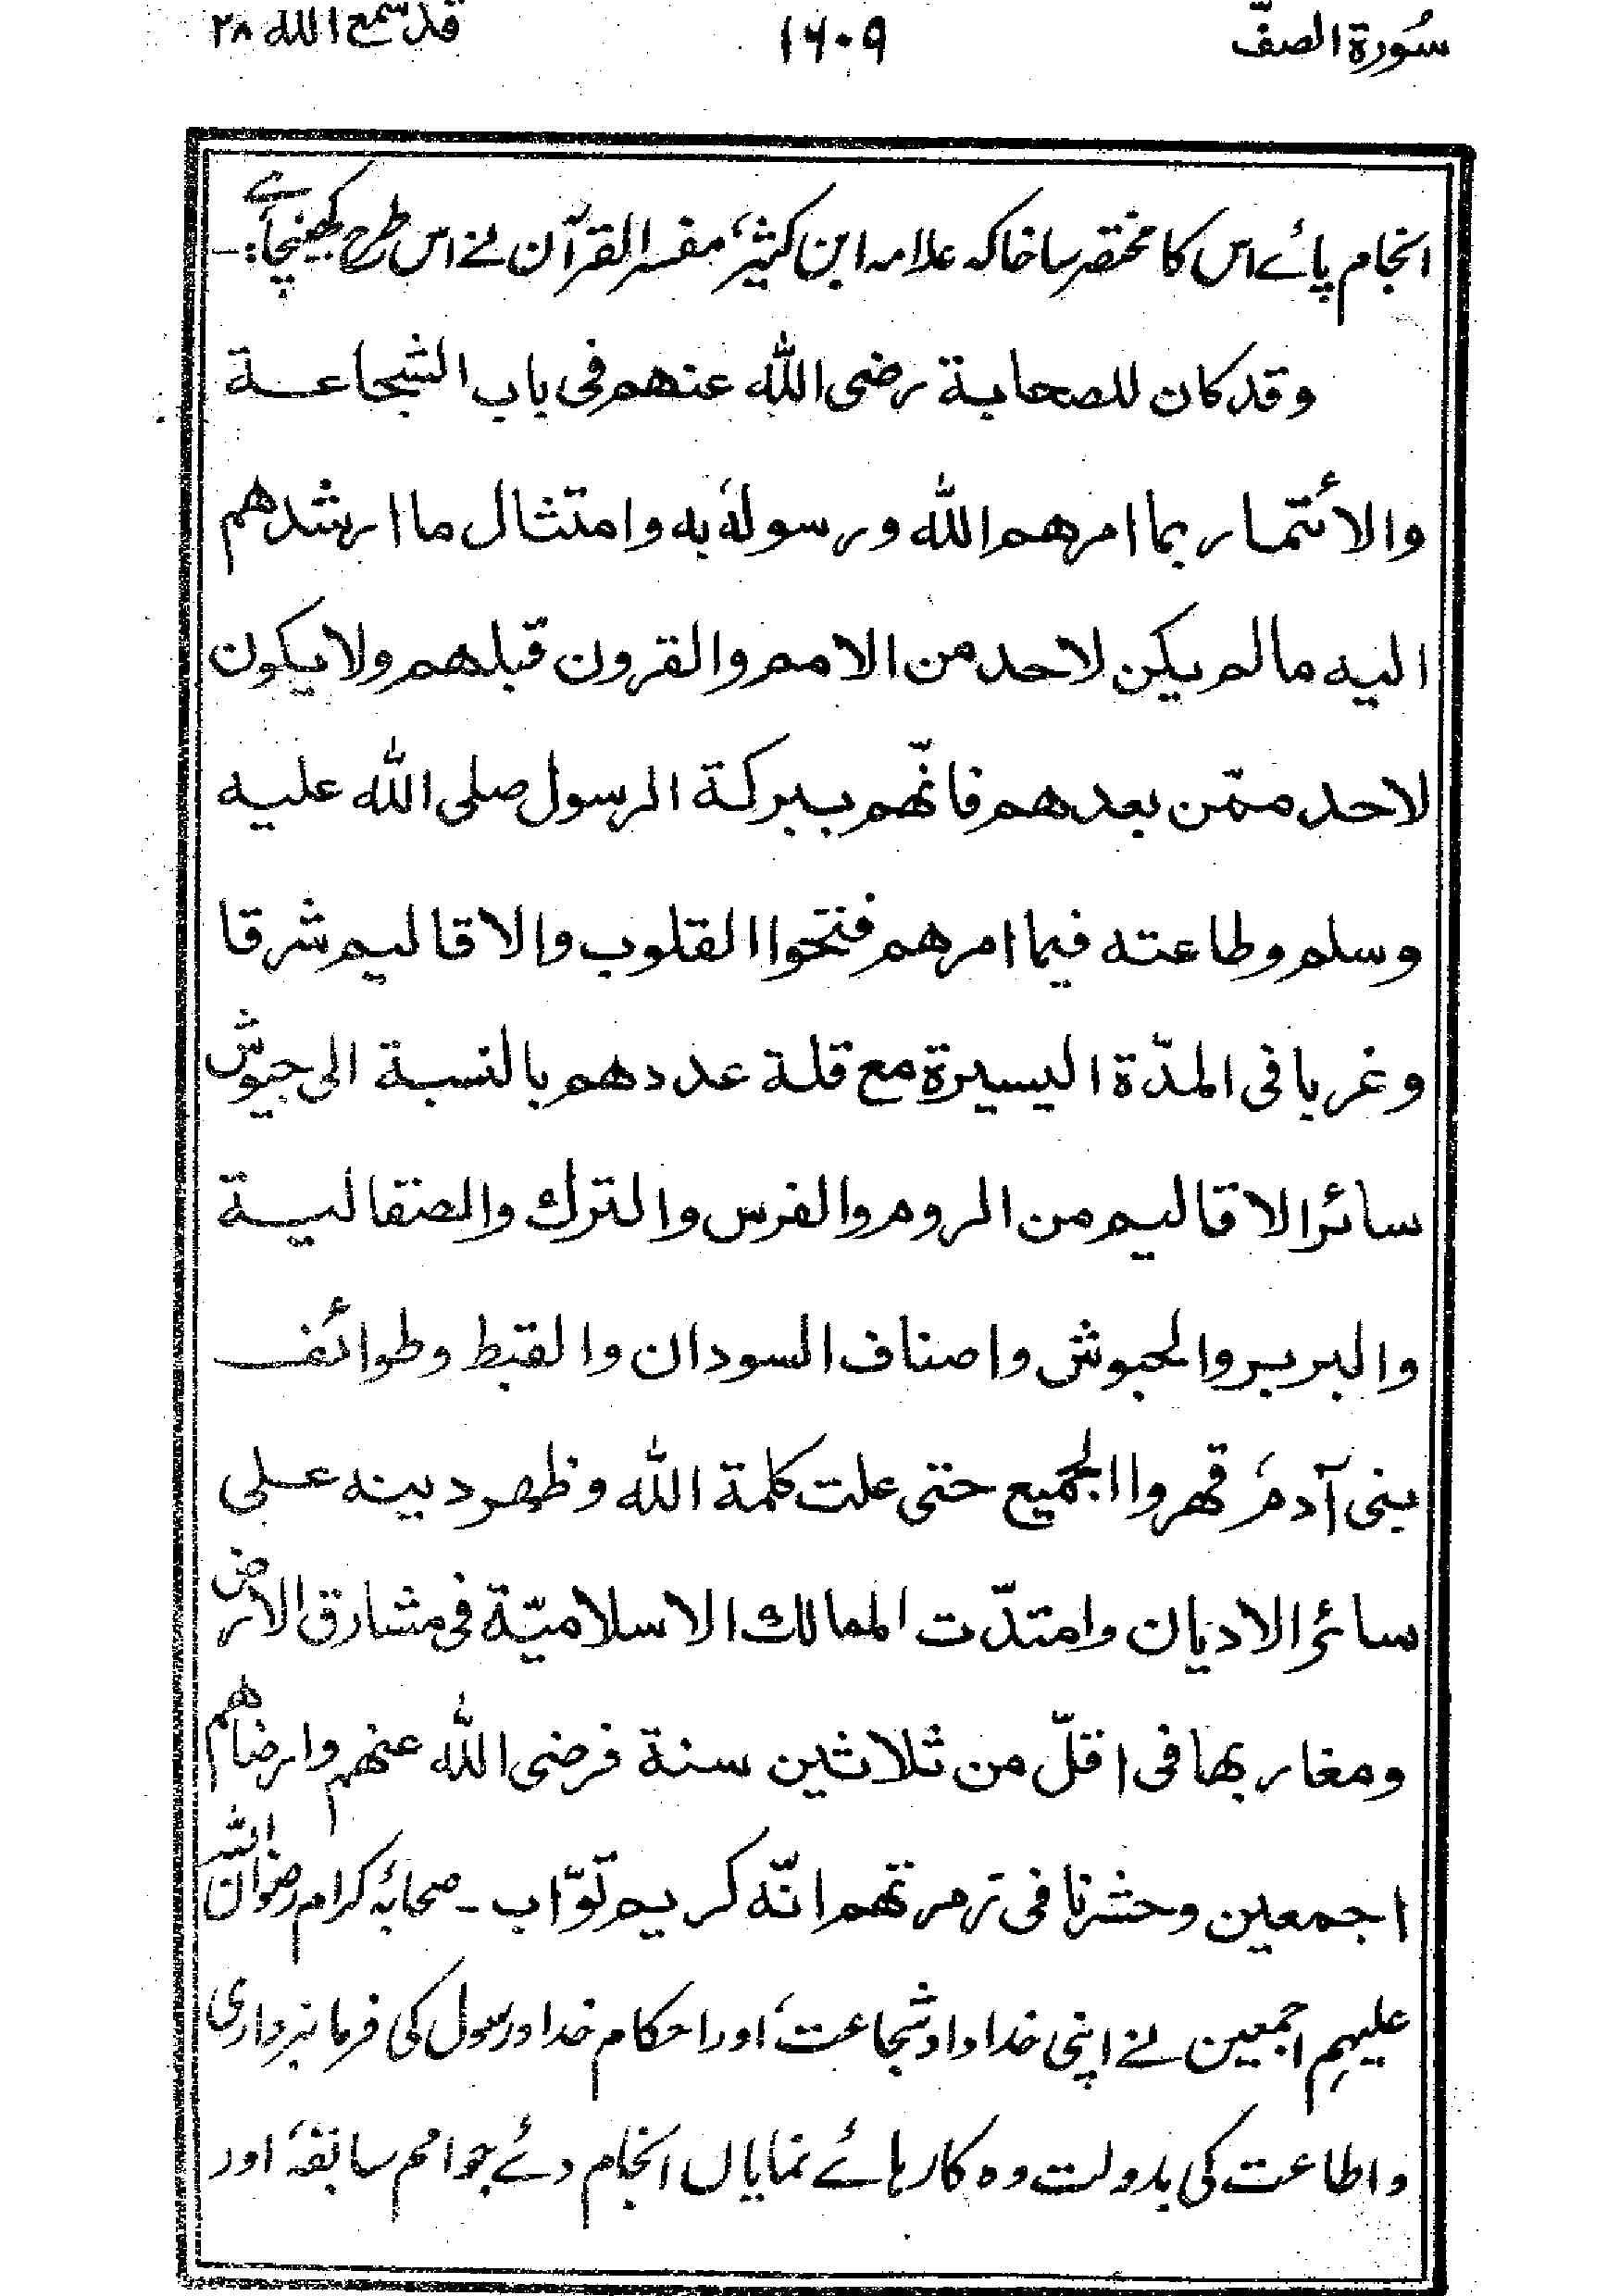 سُورة الصفّ ۱۶۰۹ قد سمع الله ۲۸
انجام پائے اس کا مختصر سا خاکہ علامہ ابن کثیرؒ مفسر القرآن نے اس طرح کھینچا ہے :-
وقد كان للصحابة رضى الله عنهم فى باب الشجاعة
والأئتمار بما امرهم الله ورسولهٗ به وامتثال ما ارشدهم
اليه مالم يكن لاحد من الامم والقرون قبلهم ولا يكون
لاحد ممّن بعدهم فانّهم ببركة الرسول صلى الله عليه
وسلم وطاعته فيما امرهم فتحوا القلوب والاقاليم شرقا
وغربا فى المدّة اليسيرة مع قلة عددهم بالنسبة الى جيوش
سائر الاقاليم من الروم والفرس والترك والصقالية
والبربر والحبوش واصناف السودان والقبط وطوائف
بنى آدمؑ قهروا الجميع حتى علت كلمة الله وظهر دينه على
سائر الاديان وامتدّت الممالك الاسلاميّة فى مشارق الارض
ومغاربها فى اقلّ من ثلاثين سنة فرضى الله عنهم وارضاهم
اجمعين وحشرنا فى زمرتهم انّه كريم توّاب ۔ صحابۂ کرام رضوان اللہ
علیہم اجمعین نے اپنی خداداد شجاعت، اور احکام خدا ورسول کی فرمانبرداری
واطاعت کی بدولت وہ کارہائے نمایاں انجام دئے جو امم سابقہ، اور